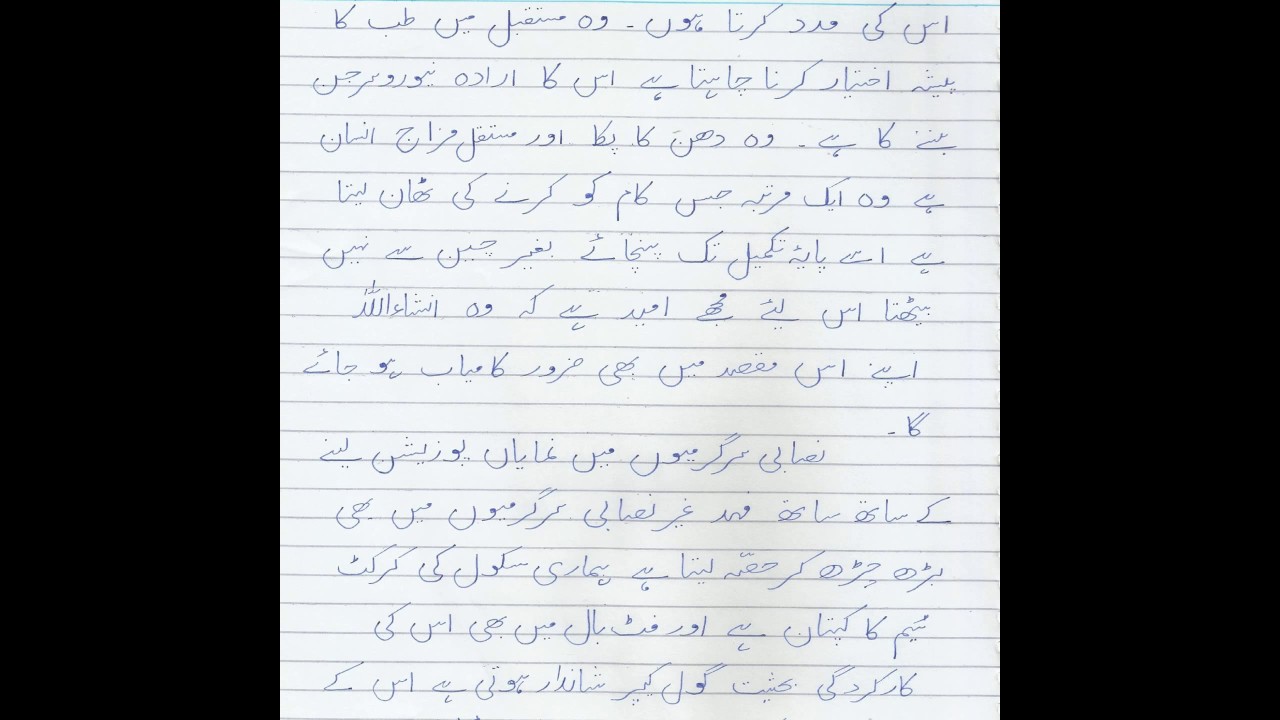 اس کی مدد کرتا ہوں۔ وہ مستقبل میں طب کا
پیشہ اختیار کرنا چاہتا ہے اس کا ارادہ نیوروسرجن
بننے کا ہے۔ وہ دھن کا پکا اور مستقل مزاج انسان
ہے وہ ایک مرتبہ جس کام کو کرنے کی ٹھان لیتا
ہے اسے پایۂ تکمیل تک پہنچائے بغیر چین سے نہیں
بیٹھتا اس لیئے مجھے امید ہے کہ وہ انشاءاللہ
اپنے اس مقصد میں بھی ضرور کامیاب ہو جائے
گا۔
نصابی سرگرمیوں میں نمایاں پوزیشن لینے
کے ساتھ ساتھ فہد غیر نصابی سرگرمیوں میں بھی
بڑھ چڑھ کر حصّہ لیتا ہے ہماری سکول کی کرکٹ
ٹیم کا کپتان ہے اور فٹ بال میں بھی اس کی
کارکردگی بحثیت گول کیپر شاندار ہوتی ہے اس کے